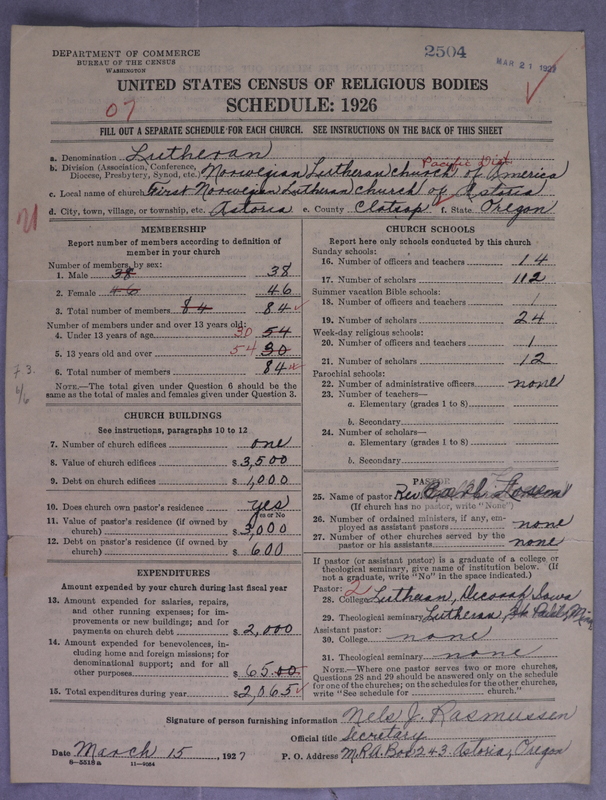 DEPARTMENT OF COMMERCE
BUREAU OF THE CENSUS
WASHINGTON
2504
MAR 21 1927
UNITED STATES CENSUS OF RELIGIOUS BODIES
SCHEDULE: 1926
07
FILL OUT A SEPARATE SCHEDULE FOR EACH CHURCH. SEE INSTRUCTIONS ON THE BACK OF THIS SHEET
a. Denomination Lutheran
Pacific Dist.
b. Division (Association, Conference, Diocese, Presbytery, Synod, etc.) Norwegian Lutheran church of America
c. Local name of church First Norwegian Lutheran church of Astoria
d. City, town, village, or township, etc. Astoria e. County Clatsop f. State Oregon
MEMBERSHIP
Report number of members according to definition of
member in your church
Number of members, by sex:
1. Male 38 38
2. Female 46 46
3. Total number of members 84 84
Number of members under and over 13 years old:
4. Under 13 years of age 30 54
5. 13 years old and over 54 30
6. Total number of members 84
NOTE.—The total given under Question 6 should be the
same as the total of males and females given under Question 3.
CHURCH BUILDINGS
See instructions, paragraphs 10 to 12
7. Number of church edifices one
8. Value of church edifices $3,500
9. Debt on church edifices $1,000
10. Does church own pastor's residence yes
Yes or No
11. Value of pastor's residence (if owned by
church) $3,000
12. Debt on pastor's residence (if owned by
church) $600
EXPENDITURES
Amount expended by your church during last fiscal year
13. Amount expended for salaries, repairs,
and other running expenses; for im-
provements or new buildings; and for
payments on church debt $2,000
14. Amount expended for benevolences, in-
cluding home and foreign missions; for
denominational support; and for all
other purposes $65.00
15. Total expenditures during year $2,065
CHURCH SCHOOLS
Report here only schools conducted by this church
Sunday schools:
16. Number of officers and teachers 14
17. Number of scholars 112
Summer vacation Bible schools:
18. Number of officers and teachers 1
19. Number of scholars 24
Week-day religious schools:
20. Number of officers and teachers 1
21. Number of scholars 12
Parochial schools:
22. Number of administrative officers none
23. Number of teachers—
a. Elementary (grades 1 to 8)
b. Secondary
24. Number of scholars—
a. Elementary (grades 1 to 8)
b. Secondary
PASTOR
25. Name of pastor Rev.
(If church has no pastor, write "None")
26. Number of ordained ministers, if any, em-
ployed as assistant pastors none
27. Number of other churches served by the
pastor or his assistants none
If pastor (or assistant pastor) is a graduate of a college or
theological seminary, give name of institution below. (If
not a graduate, write "No" in the space indicated.)
Pastor: 2
28. College Lutheran, Decorah, Iowa
29. Theological seminary Lutheran,
Assistant pastor:
30. College none
31. Theological seminary none
NOTE.—Where one pastor serves two or more churches,
Questions 28 and 29 should be answered only on the schedule
for one of the churches; on the schedules for the other churches,
write "See schedule for church."
Signature of person furnishing information Nels J. Rasmussen
Official title Secretary
Date March 15, 1927 P. O. Address M.R.A. Box 243. Astoria, Oregon
8—5518a 11—9084